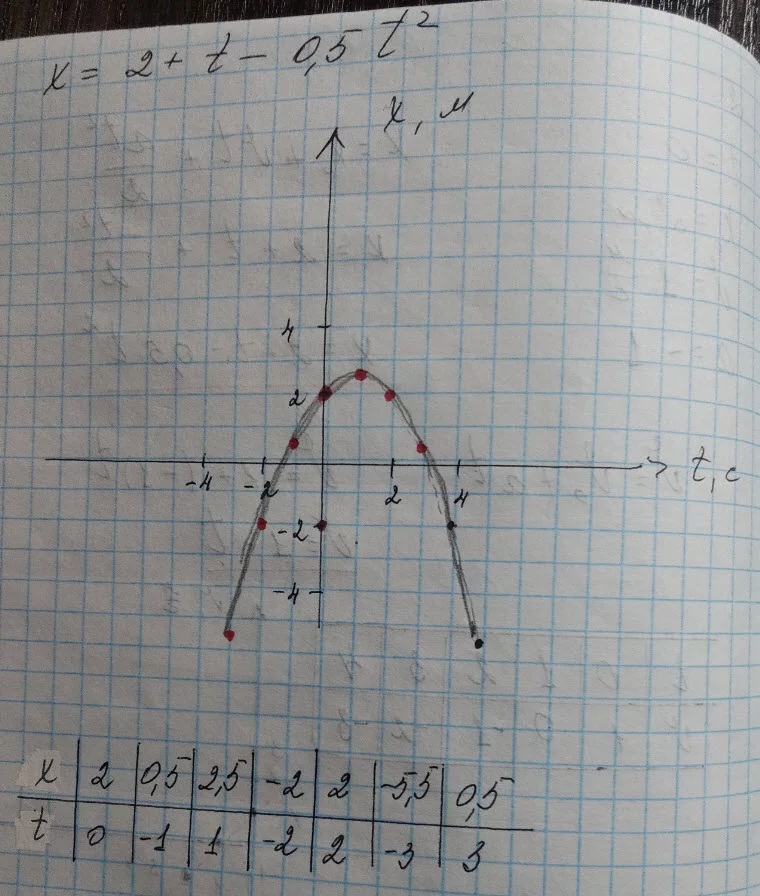 x = 2 + t - 0,5 t²
x, м
4
2
-4 -2 2 4 t, c
-2
-4
x | 2 | 0,5 | 2,5 | -2 | 2 | -5,5 | 0,5
t | 0 | -1 | 1 | -2 | 2 | -3 | 3